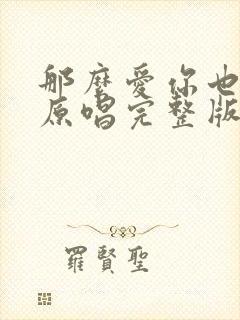 那麼愛你也
原唱完整版
羅賢聖